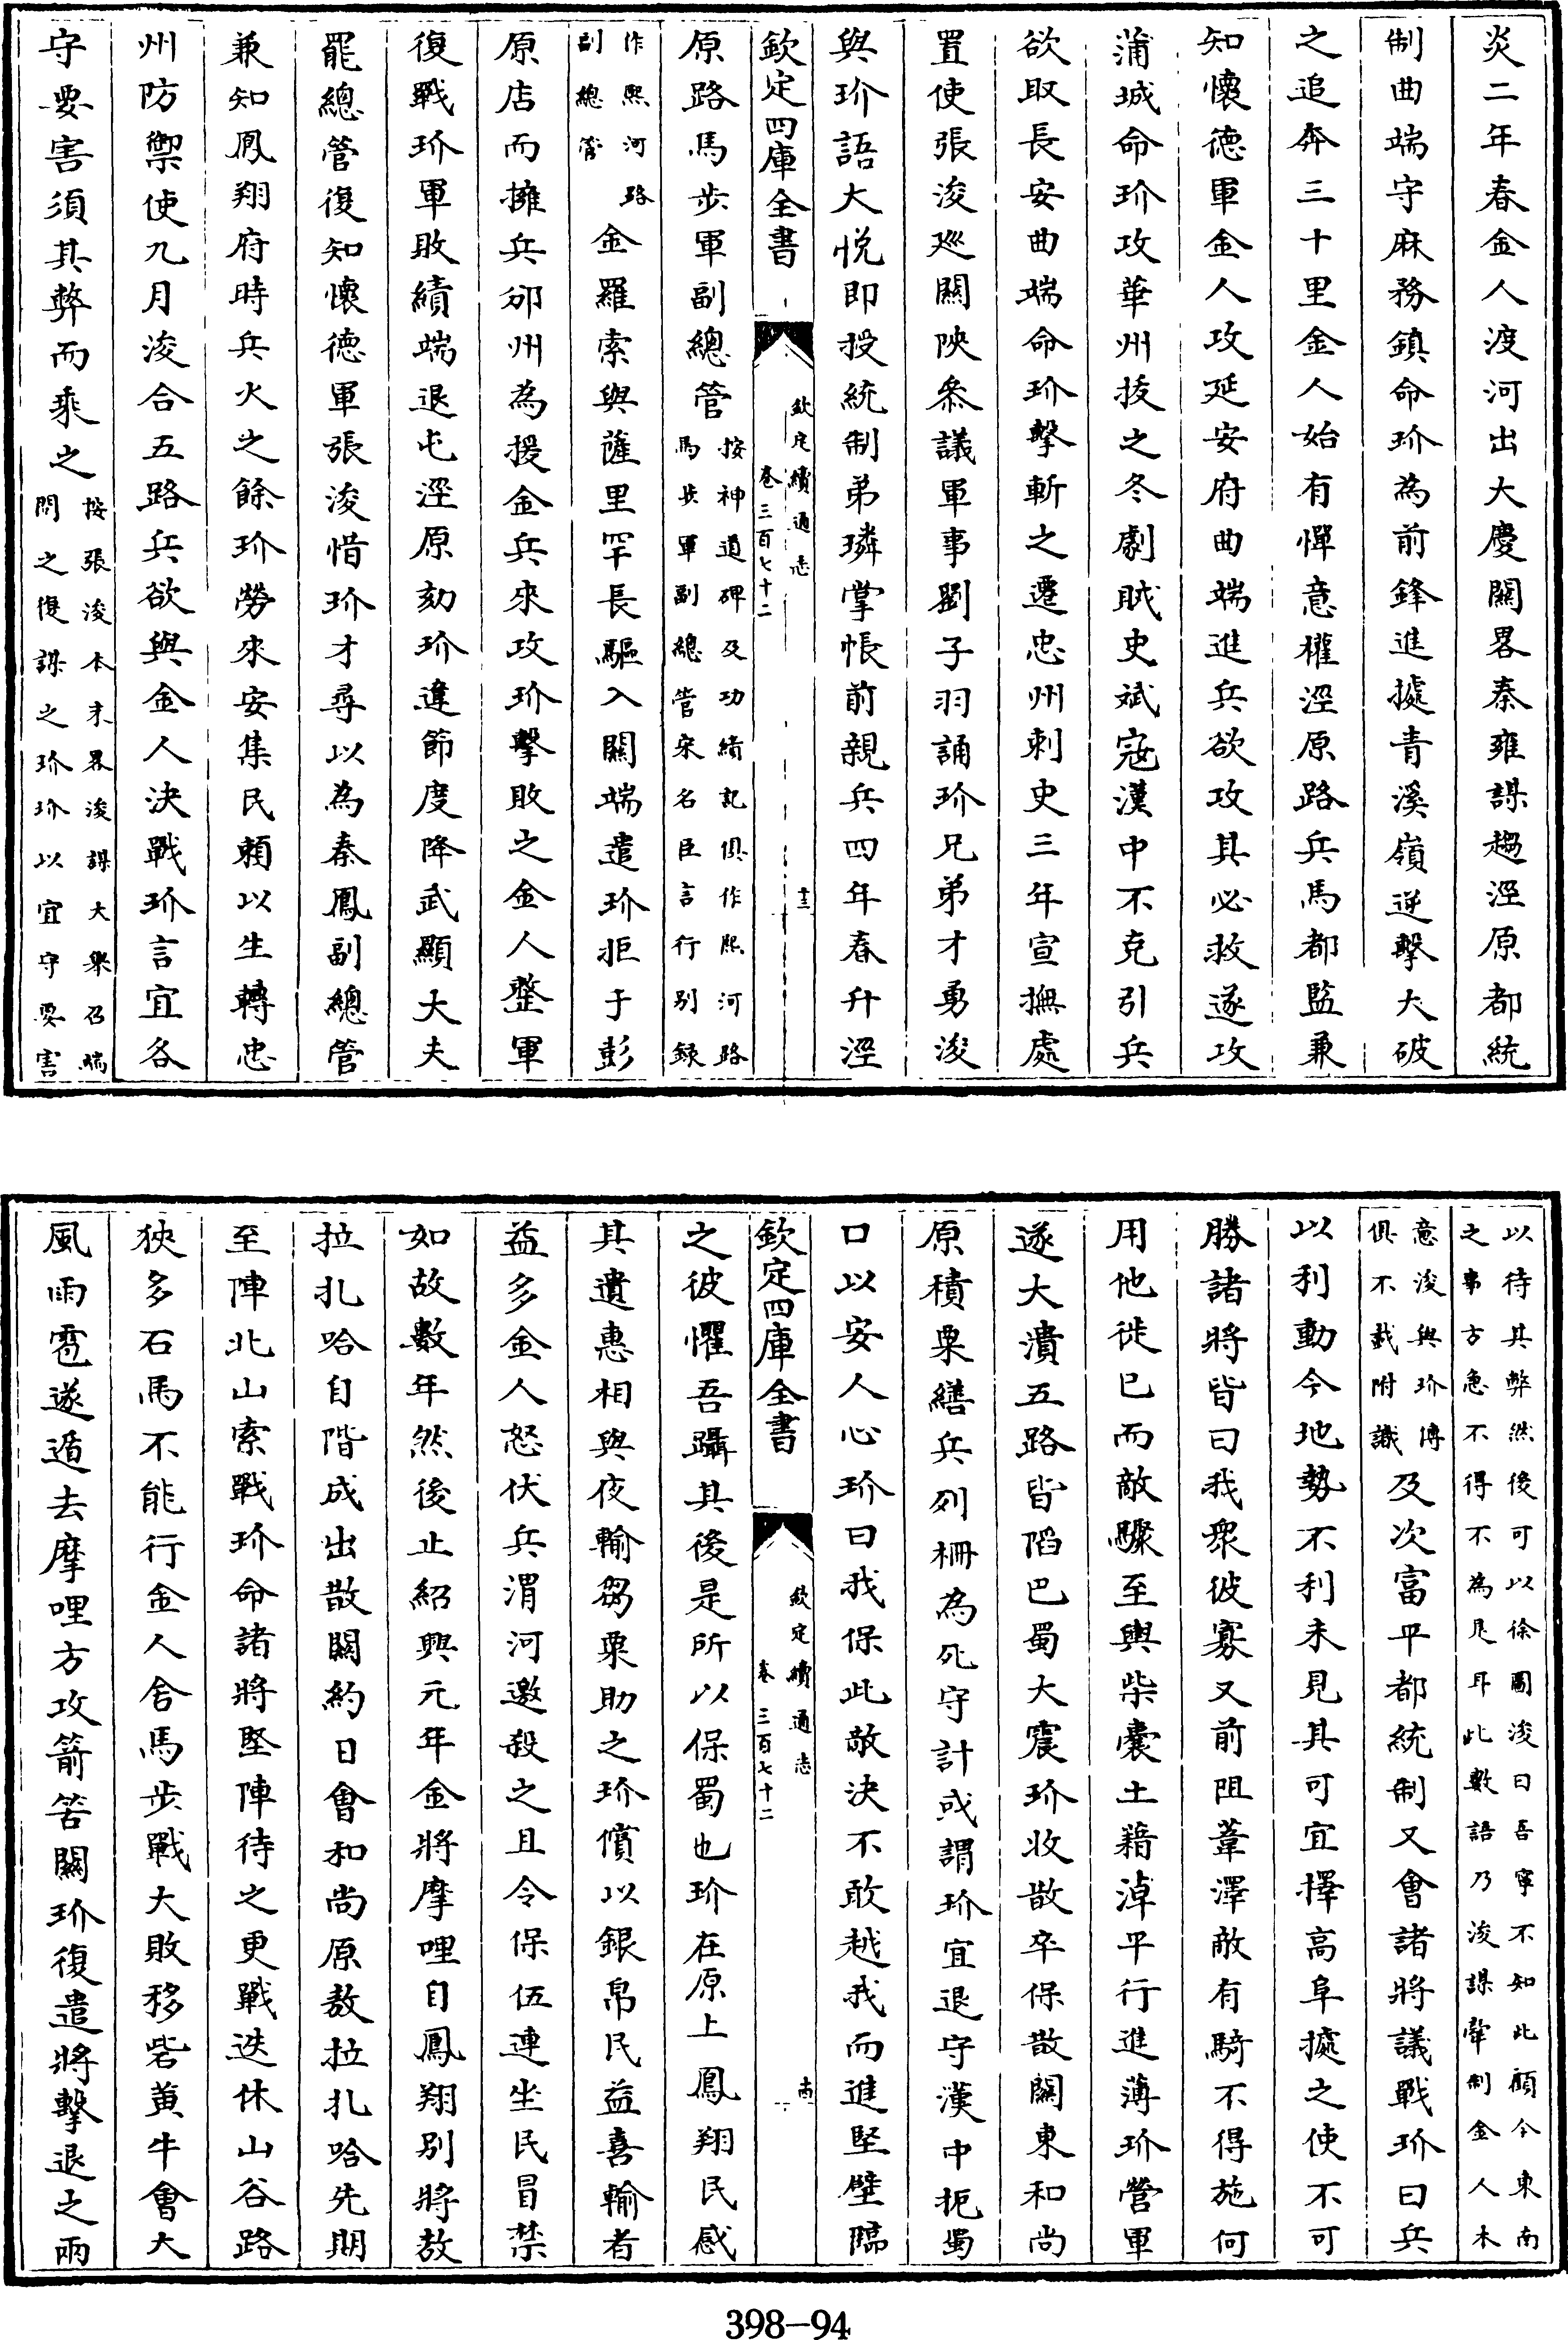 炎二年春金人渡河出大慶關畧秦雍謀趨涇原都統
制曲端守麻務鎮命玠為前鋒進據青溪嶺逆擊大破
之追奔三十里金人始有憚意權涇原路兵馬都監兼
知懷德軍金人攻延安府曲端進兵欲攻其必救遂攻
蒲城命玠攻華州拔之冬劇賊史斌寇漢中不克引兵
欲取長安曲端命玠擊斬之遷忠州刺史三年宣撫處
置使張浚巡關陝叅議軍事劉子羽誦玠兄弟才勇浚
與玠語大悅即授統制弟璘掌帳前親兵四年春升涇
欽定四庫全書
欽定續通志
卷三百七十二
十三
原路馬步軍副總管按神道碑及功績記俱作熙河路
馬步軍副總管宋名臣言行别録
作熙河路
副總管金羅索與薩里罕長驅入關端遣玠拒于彭
原店而擁兵邠州為援金兵來攻玠擊敗之金人整軍
復戰玠軍敗績端退屯涇原劾玠違節度降武顯大夫
罷總管復知懷德軍張浚惜玠才尋以為秦鳳副總管
兼知鳳翔府時兵火之餘玠勞來安集民賴以生轉忠
州防禦使九月浚合五路兵欲與金人決戰玠言宜各
守要害須其弊而乘之按張浚本末畧浚謀大舉召端
問之復謀之玠玠以宜守要害
以待其弊然後可以徐圖浚曰吾寧不知此顧今東南
之事方急不得不為是耳此數語乃浚謀牽制金人本
意浚與玠傳
俱不載附識及次富平都統制又會諸將議戰玠曰兵
以利動今地勢不利未見其可宜擇高阜據之使不可
勝諸將皆曰我衆彼寡又前阻葦澤敵有騎不得施何
用他徙已而敵驟至輿柴囊土藉淖平行進薄玠營軍
遂大潰五路皆陷巴蜀大震玠收散卒保散關東和尚
原積粟繕兵列柵為死守計或謂玠宜退守漢中扼蜀
口以安人心玠曰我保此敵決不敢越我而進堅壁臨
欽定四庫全書
欽定續通志
卷三百七十二
十四
之彼懼吾躡其後是所以保蜀也玠在原上鳳翔民感
其遺惠相與夜輸芻粟助之玠償以銀帛民益喜輸者
益多金人怒伏兵渭河邀殺之且令保伍連坐民冒禁
如故數年然後止紹興元年金將摩哩自鳳翔别將敖
拉扎哈自階成出散關約日會和尚原敖拉扎哈先期
至陣北山索戰玠命諸將堅陣待之更戰迭休山谷路
狹多石馬不能行金人舍馬步戰大敗移砦黄牛會大
風雨雹遂遁去摩哩方攻箭筈關玠復遣將擊退之兩
398-94